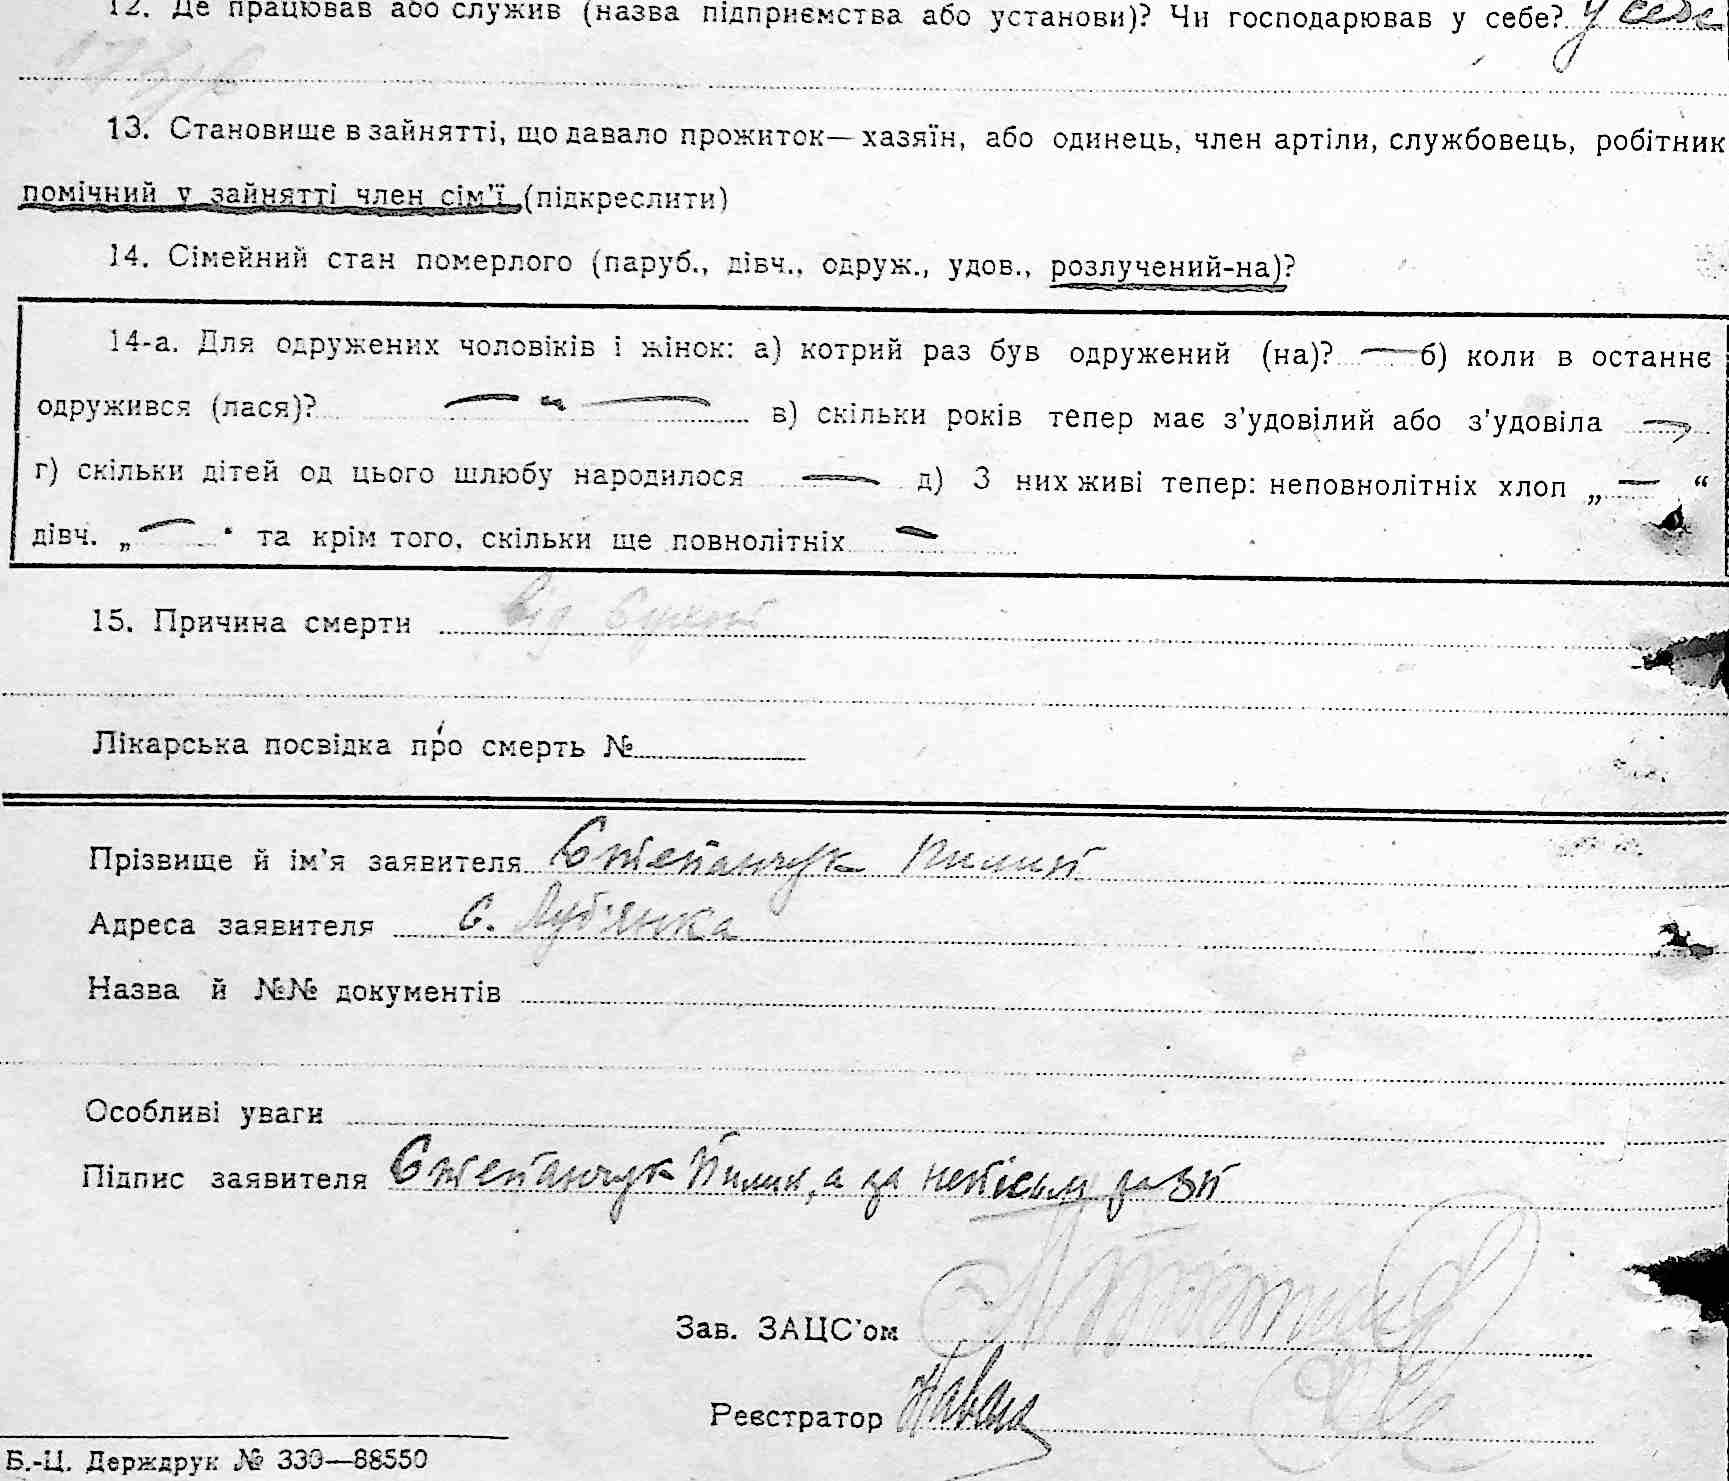 12. Де працював або служив (назва підприємства або установи)? Чи господарював у себе? у себе
13. Становише в зайнятті, що давало прожиток— хазяїн, або одинець, член артіли, службовець, робітник
помічний у зайнятті член сім'ї (підкреслити)
14. Сімейний стан померлого (паруб., дівч., одруж., удов., розлучений-на)?
14-а. Для одружених чоловіків і жінок: а) котрий раз був одружений (на)? — б) коли в останнє
одружився (лася)? — „ — в) скільки років тепер має з'удовілий або з'удовіла —
г) скільки дітей од цього шлюбу народилося — д) З них живі тепер: неповнолітніх хлоп „ — “
дівч. „ — “ та крім того, скільки ще повнолітніх —
15. Причина смерти від
Лікарська посвідка про смерть №
Прізвище й ім'я заявителя Степанчук Пилип
Адреса заявителя С. Луб'янка
Назва й №№ документів
Особливі уваги
Підпис заявителя Степанчук Пилип, а за
Зав. ЗАЦС'ом
Реєстратор
Б.-Ц. Держдрук № 330—88550